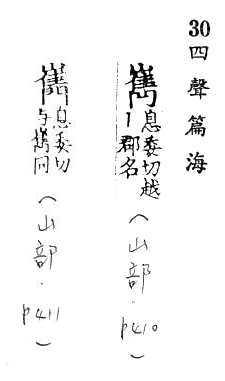 30 四聲篇海
嶲 息委切越
丨郡名
(山部.p410)
息委切
与嶲同
(山部.p411)